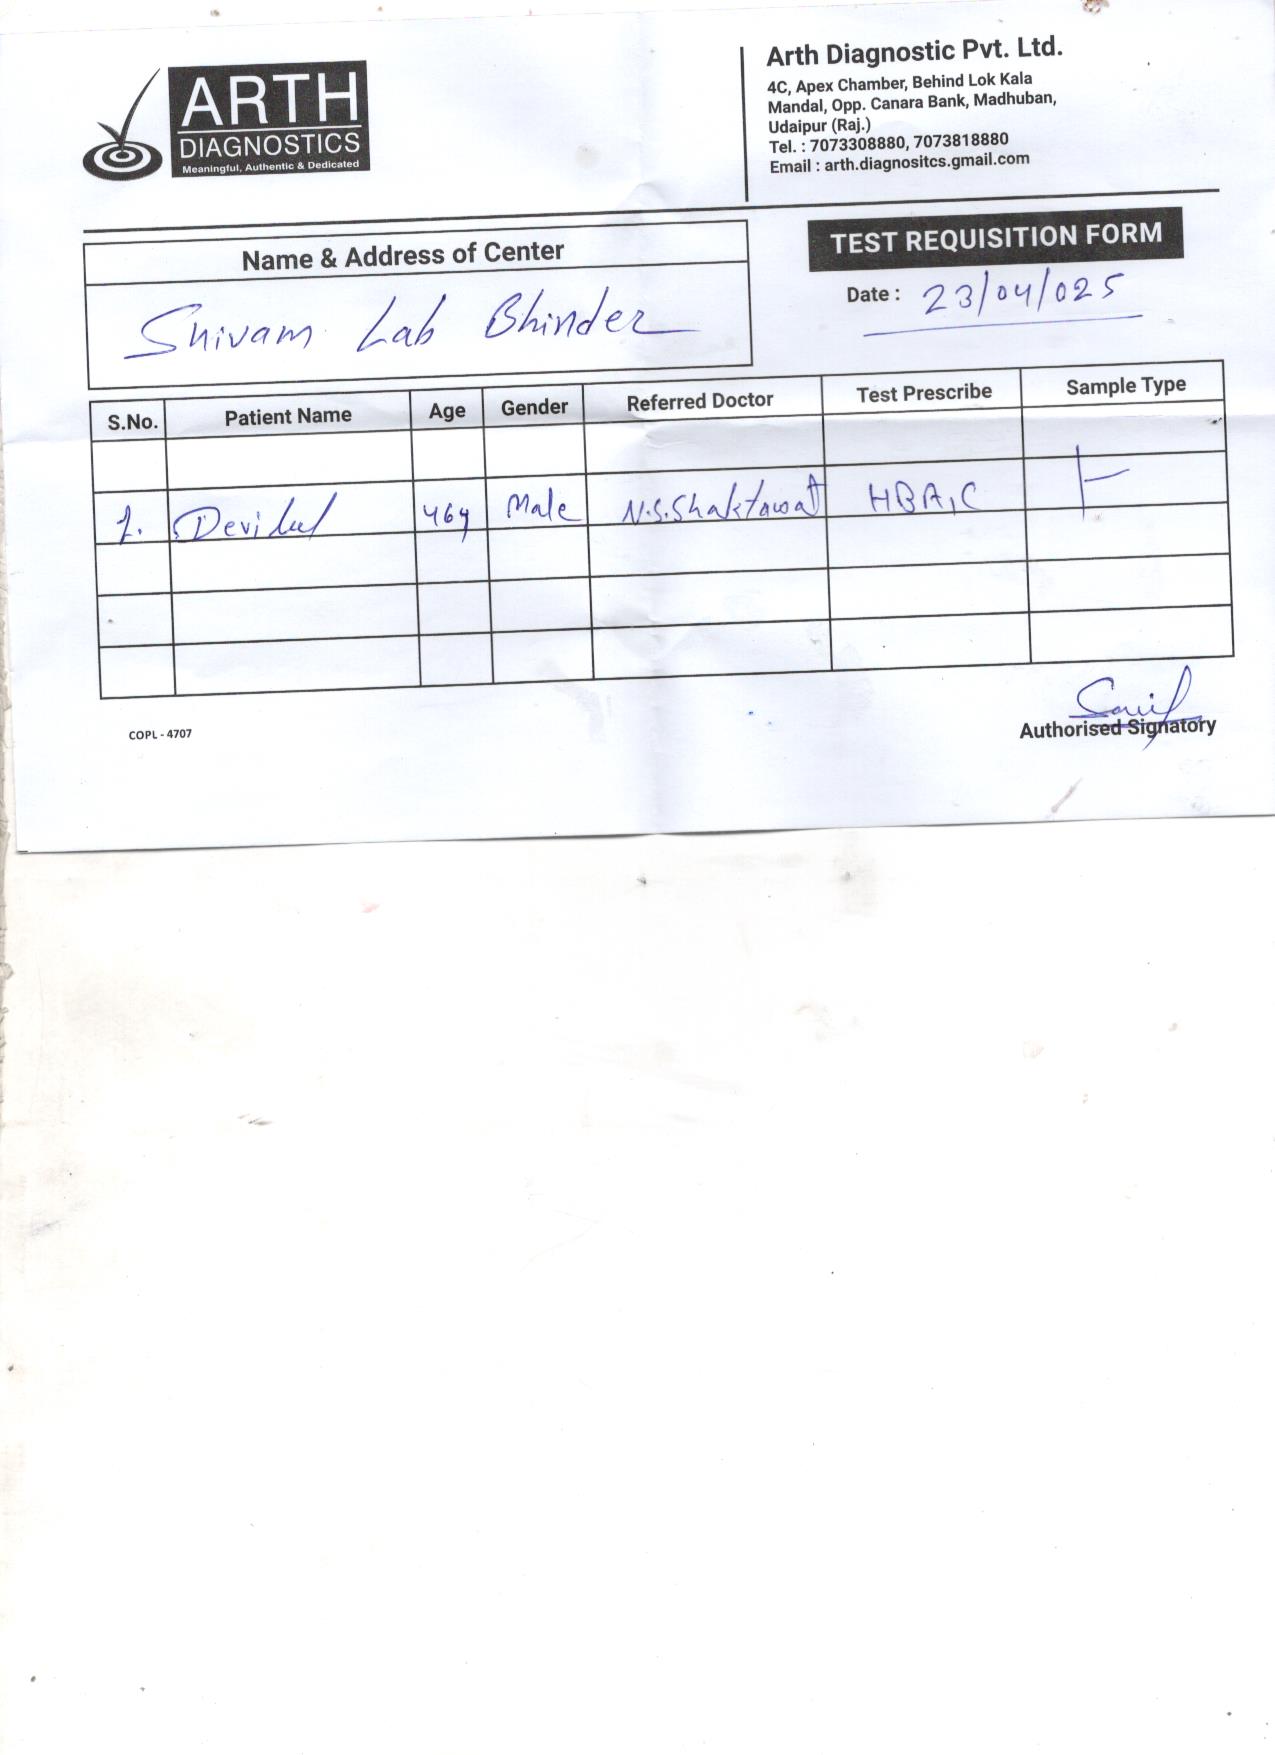 ARTH
DIAGNOSTICS
Meaningful, Authentic & Dedicated
Arth Diagnostic Pvt. Ltd.
4C, Apex Chamber, Behind Lok Kala
Mandal, Opp. Canara Bank, Madhuban,
Udaipur (Raj.)
Tel. : 7073308880, 7073818880
Email : arth.diagnositcs.gmail.com
Name & Address of Center
Shivam Lab Bhinder
TEST REQUISITION FORM
Date : 23/04/025
S.No. Patient Name Age Gender Referred Doctor Test Prescribe Sample Type
1. Devilal 46y Male N.S.Shaktawat HBA1C
Authorised Signatory
COPL - 4707